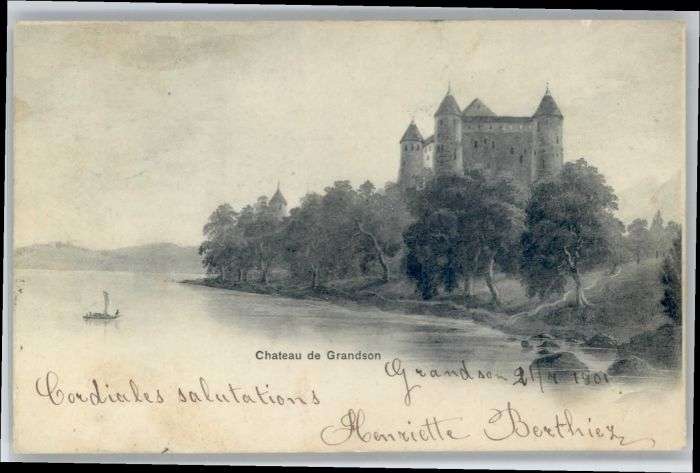 Chateau de Grandson
Grandson 1901
Cordiales salutations
Henriette Berthiez